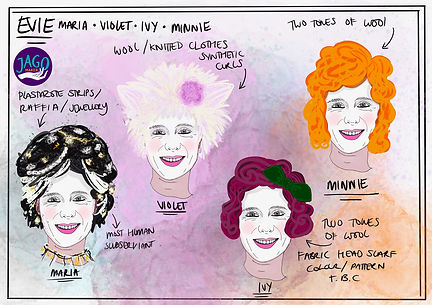 EVIE MARIA • VIOLET • IVY • MINNIE
JAGO
WOOL/KNITTED CLOTHES
SYNTHETIC
CURLS
TWO TONES OF WOOL
PLASTAZOTE STRIPS/
RAFFIA/JEWELLERY
VIOLET
MINNIE
MOST HUMAN
SUBSERVIANT.
MARIA
IVY
TWO TONES
OF WOOL
FABRIC HEAD SCARF
COLOUR/PATTERN
T.B.C